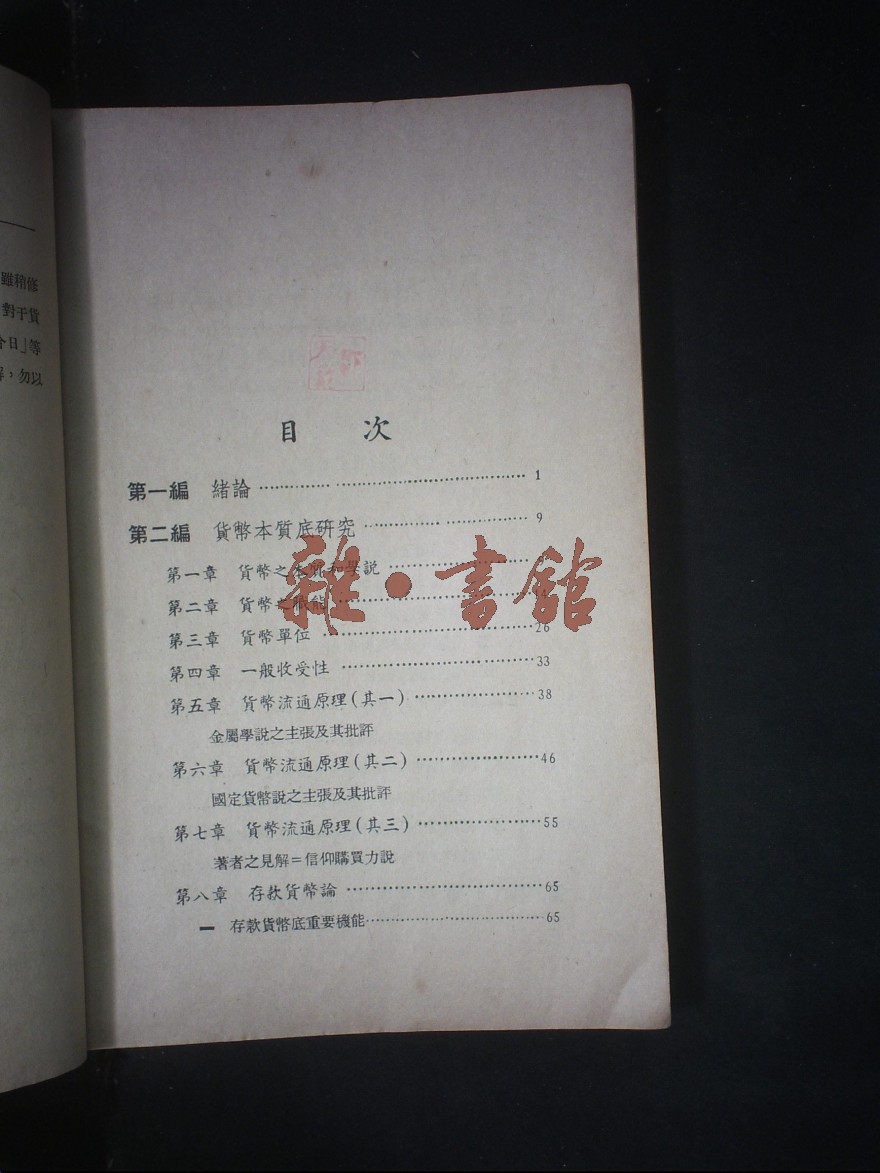 雖稍修
對于貨
今日」等
，勿以
目 次
第一編 緒論 …………………………… 1
第二編 貨幣本質底研究 …………………… 9
第一章 貨幣之本質和學說 ……………………
第二章 貨幣之職能 …………………… 14
第三章 貨幣單位 …………………… 26
第四章 一般收受性 …………………… 33
第五章 貨幣流通原理(其一) …………… 38
金屬學說之主張及其批評
第六章 貨幣流通原理(其二) …………… 46
國定貨幣說之主張及其批評
第七章 貨幣流通原理(其三) …………… 55
著者之見解=信仰購買力說
第八章 存款貨幣論 …………………… 65
一 存款貨幣底重要機能 …………………… 65
雜·書館